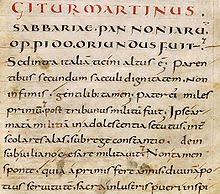 GITUR MARTINUS
SABBARIAE. PANNONIARU.
OPPIDO. ORIUNDUS FUIT.
Sed in Italia ticini altus e. Paren
tibus secundum saeculi dignitatem. Non
infimis. gentilib; tamen. Pater ei miles
primu. post tribunus militu fuit. Ipse ar
mata militia in adolescentia secutus. int
scolares alas. sub rege constantio. dein
sub iuliano cesare militauit. Non tamen
sponte. quia a primis fere annis diuina po
tius seruitute sacra inlustris pueri spi